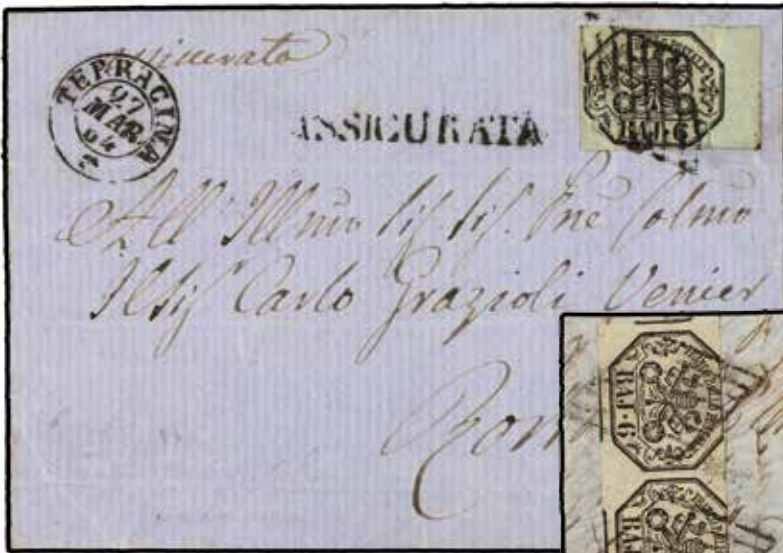 assicurata
TERRACINA
27
MAR
64
ASSICURATA
BAJ·6
All' Illmo Sig. Sig. Pne Colmo
Il Sig Carlo Grazioli Venier
Rom
BAJ·6
BAJ